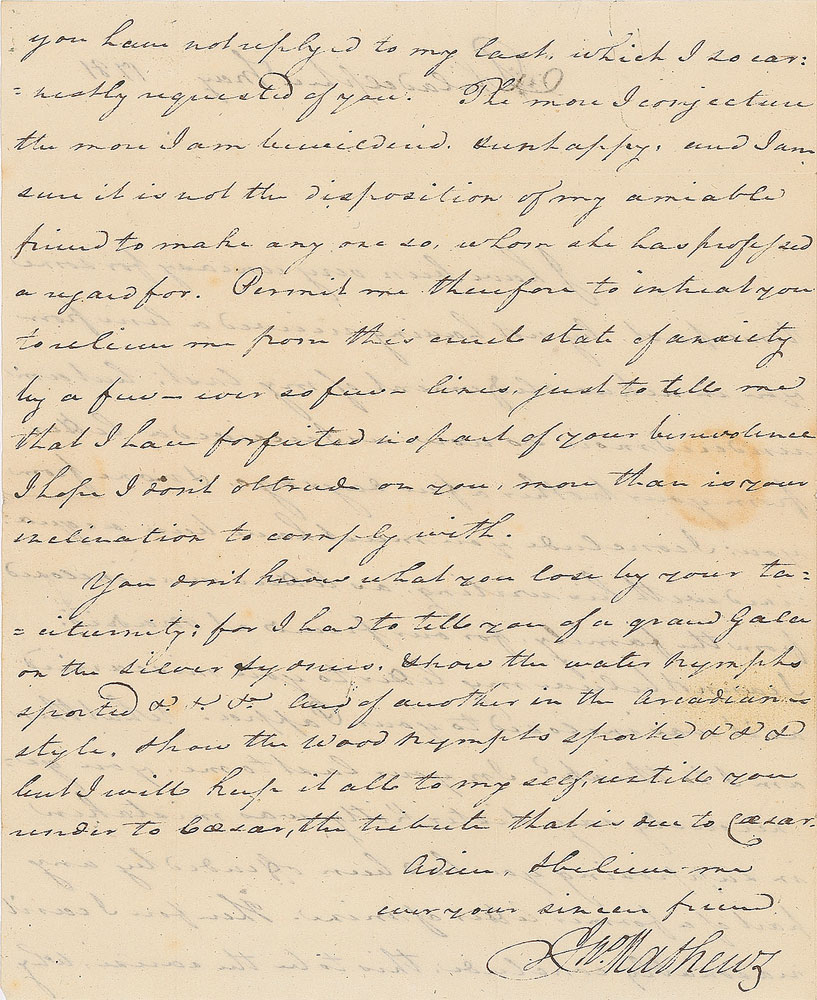 you have not replyed to my last, which I so ear:
=nestly requested of you. The more I conjecture
the more I am bewildered. & unhappy, and I am
sure it is not the disposition of my amiable
friend to make any one so, whom she has professed
a regard for. Permit me therefore to intreat you
to relieve me from this cruel state of anxiety
by a few – ever so few – lines, just to tell me
that I have forfeited no part of your benevolence
I hope I don't obtrude on you, more than is your
inclination to comply with.
You don't know what you lose by your ta=
=citurnity; for I had to tell you of a grand Gala
on the silver & how the water Nymphs
sported &. &. &. And of another in the Arcadian –
style. & how the Wood Nymphs sported & & &
but I will keep it all to my self, untill you
render to Cæsar, the tribute that is due to Cæsar.
Adieu & believe me
ever your sincere friend
Jno. Mathews